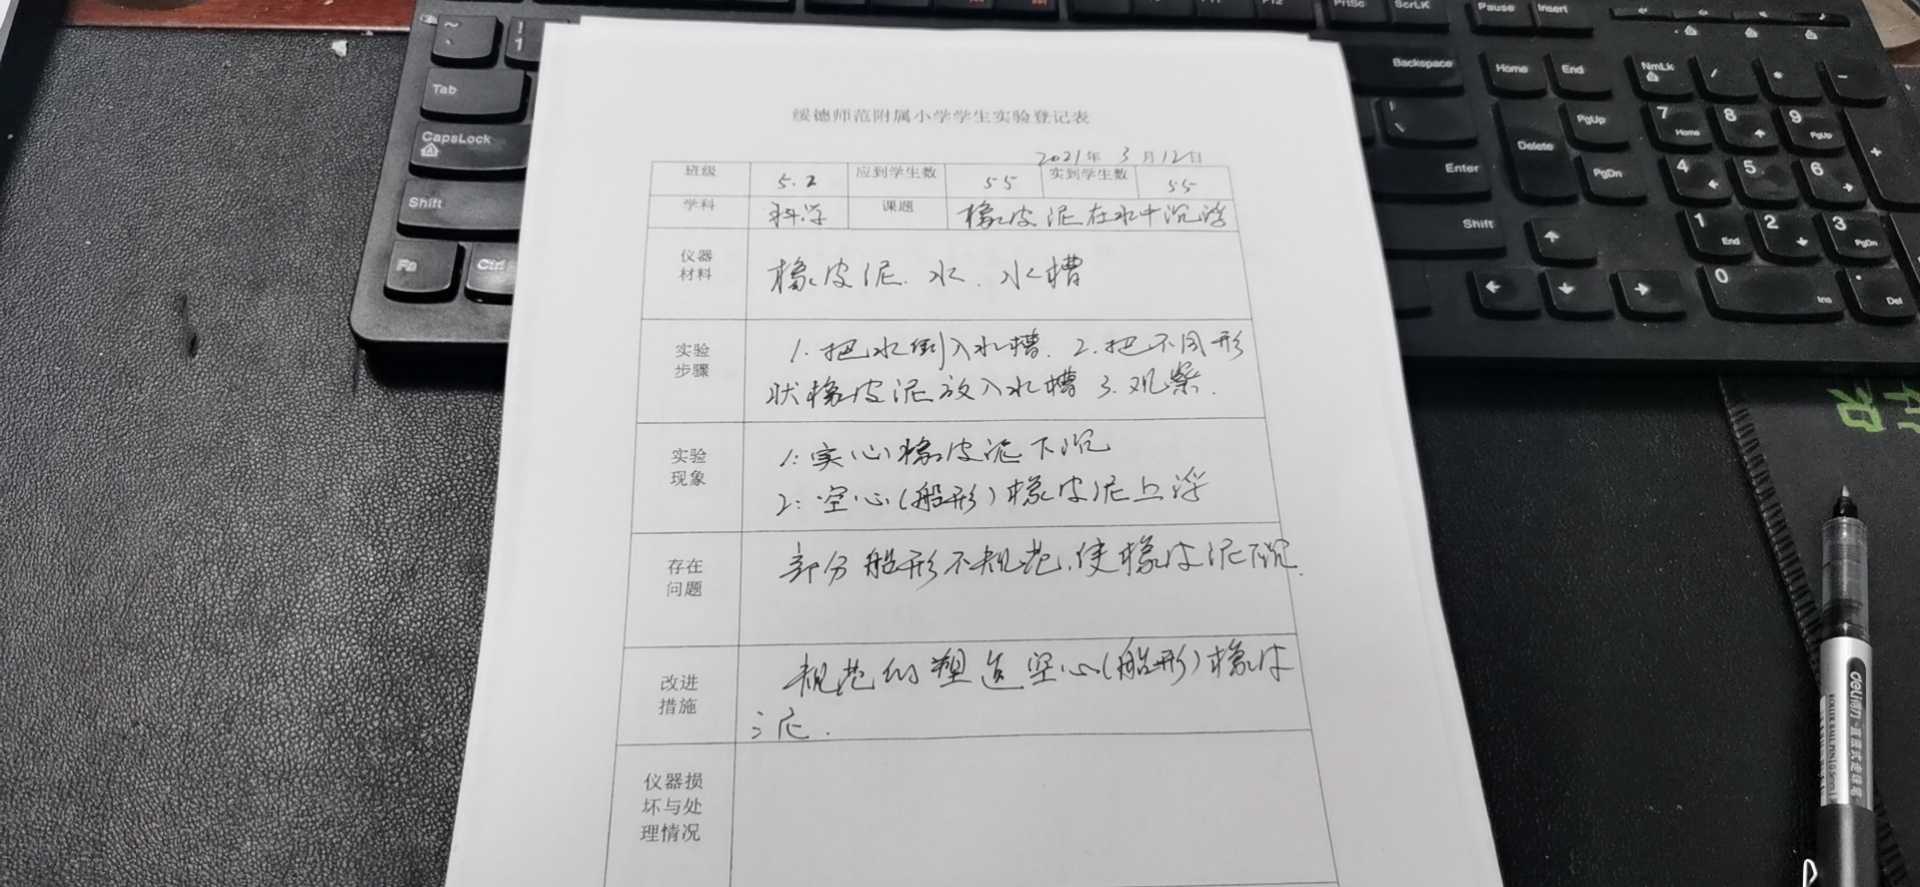 绥德师范附属小学学生实验登记表
2021年 3月12日
班级 5.2 应到学生数 55 实到学生数 55
学科 科学 课题 橡皮泥在水中沉浮
仪器材料 橡皮泥、水、水槽
实验步骤 1.把水倒入水槽. 2.把不同形
状橡皮泥放入水槽 3.观察.
实验现象 1:实心橡皮泥下沉
2:空心(船形)橡皮泥上浮
存在问题 部分船形不规范,使橡皮泥下沉.
改进措施 规范的塑造空心(船形)橡皮
泥.
仪器损坏与处理情况
PrtSc ScrLK Pause Insert
Backspace Home End NmLk / * -
Tab PgUp 7 Home 8 9 PgUp +
CapsLock Enter Delete PgDn 4 5 6
Shift Shift 1 End 2 3 PgDn
Fn Ctrl 0 Ins Del
deli